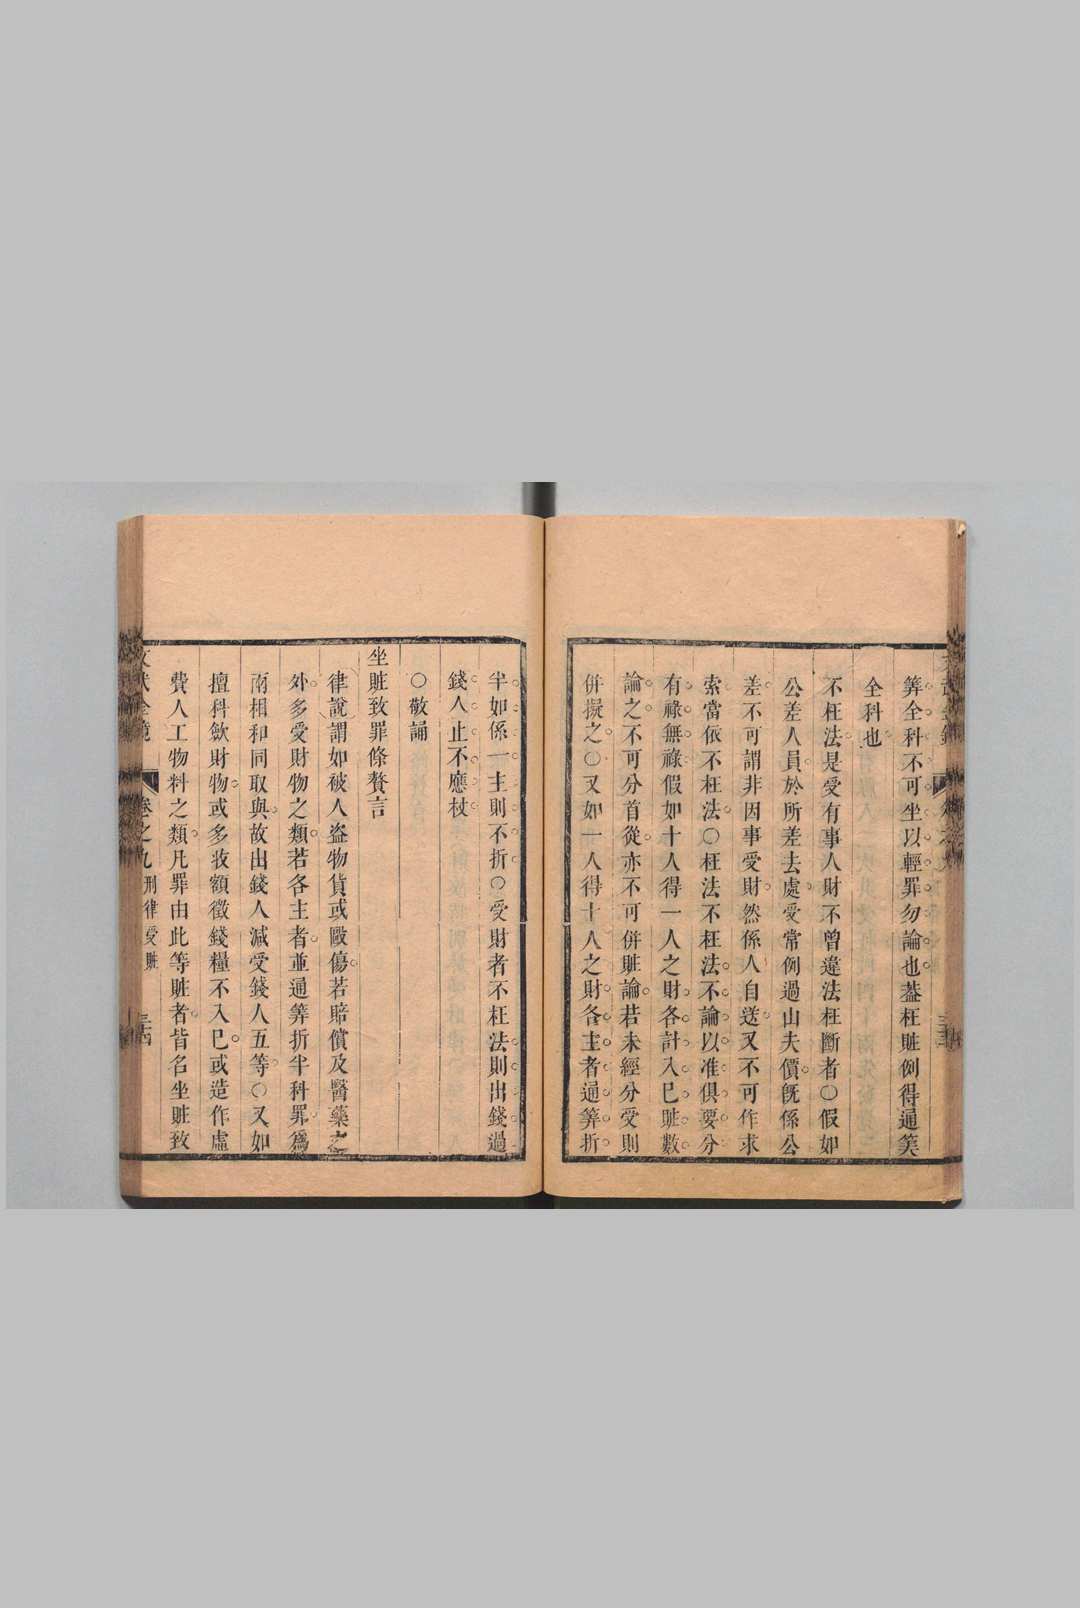 筭全科不可坐以輕罪勿論也葢枉賍例得通筭
全科也
不枉法是受有事人財不曾違法枉斷者○假如
公差人員於所差去處受常例過山夫價旣係公
差不可謂非因事受財然係人自送又不可作求
索當依不枉法○枉法不枉法不論以准俱要分
有祿無祿假如十人得一人之財各計入巳賍數
論之不可分首從亦不可併賍論若未經分受則
併擬之○又如一人得十人之財各主者通筭折
半如係一主則不折○受財者不枉法則出錢過
錢人止不應杖
○敬誦
坐賍致罪條贅言
律說謂如被人盜物貨或毆傷若賠償及醫藥之
外多受財物之類若各主者並通筭折半科罪爲
兩相和同取與故出錢人減受錢人五等○又如
擅科歛財物或多收額徵錢糧不入巳或造作虛
費人工物料之類凡罪由此等賍者皆名坐賍致
卷之九 刑律受賍 三十四